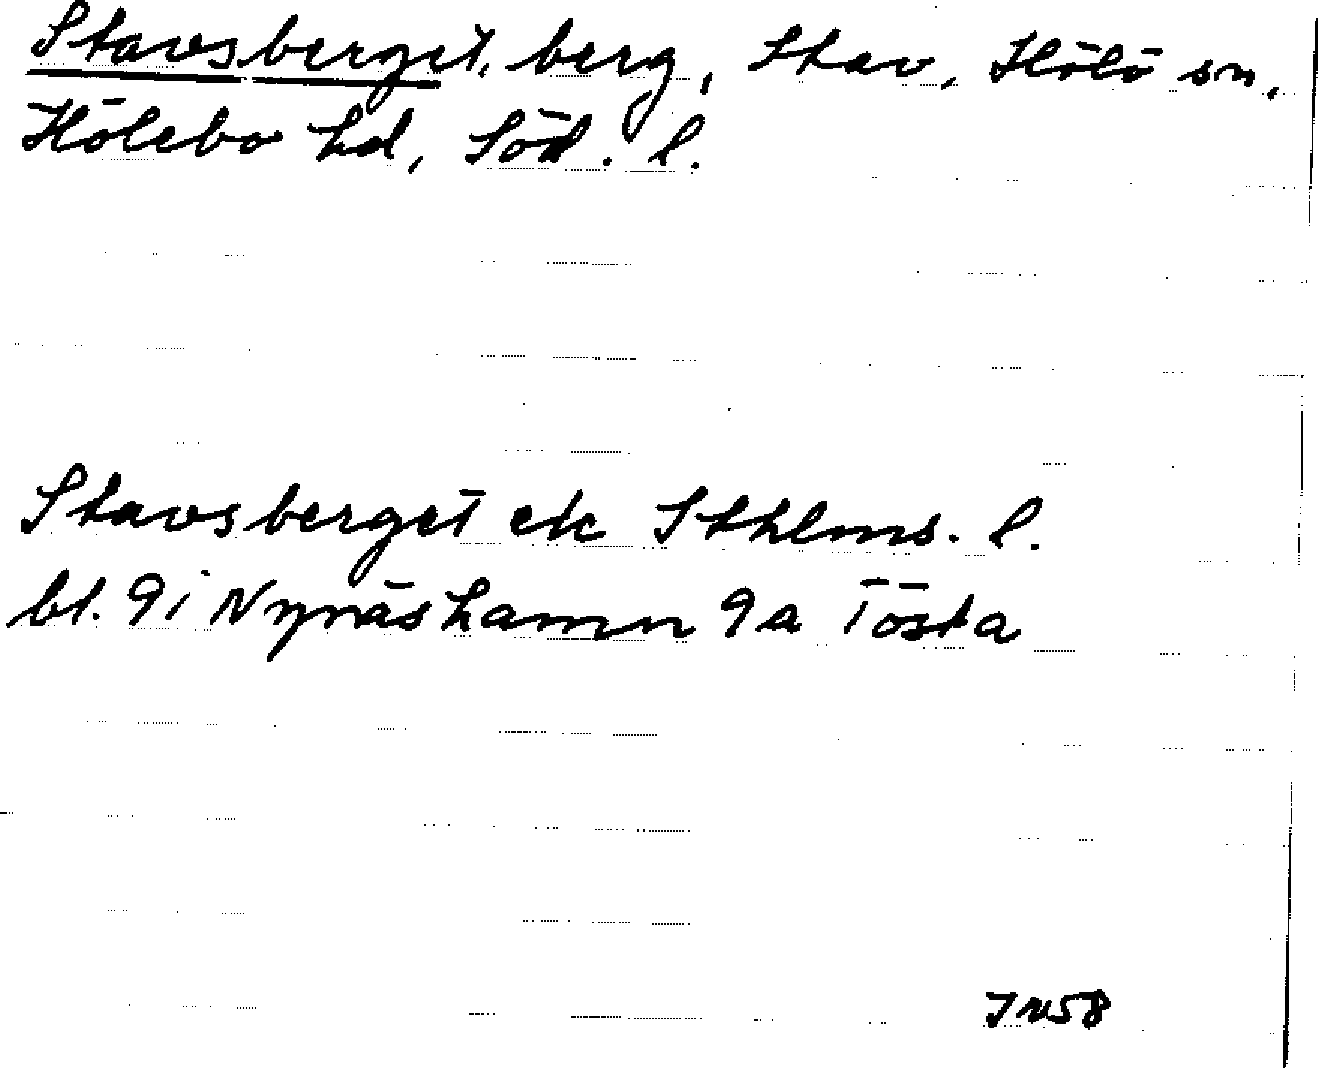 Stavsberget, berg, Stav, Hölö sn,
Hölebo hd, Söd. l.
Stavsberget ek Sthlms. l.
bl. 9i Nynäshamn 9a Tösta
IN58